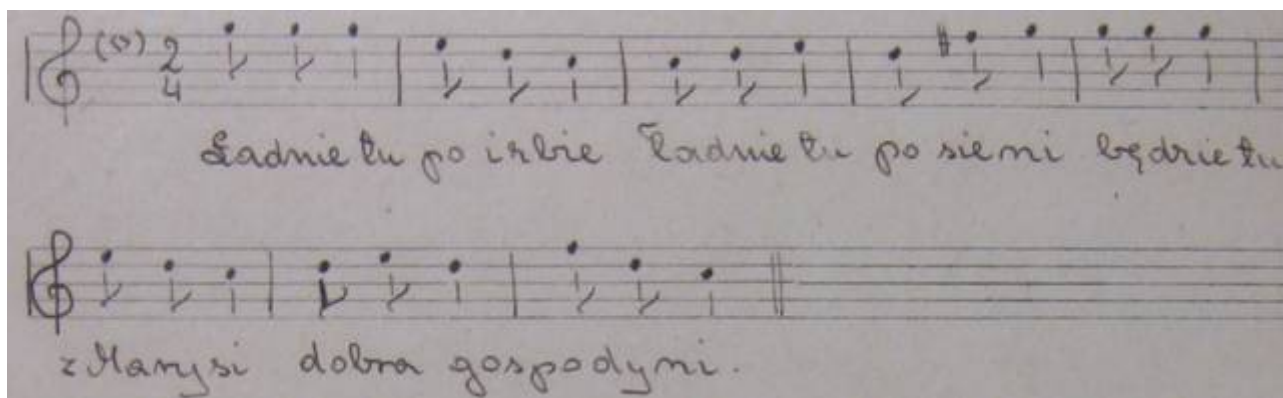 (o) 2 4
Ładnie tu po izbie Ładnie tu po sieni będzie tu
z Marysi dobra gospodyni.